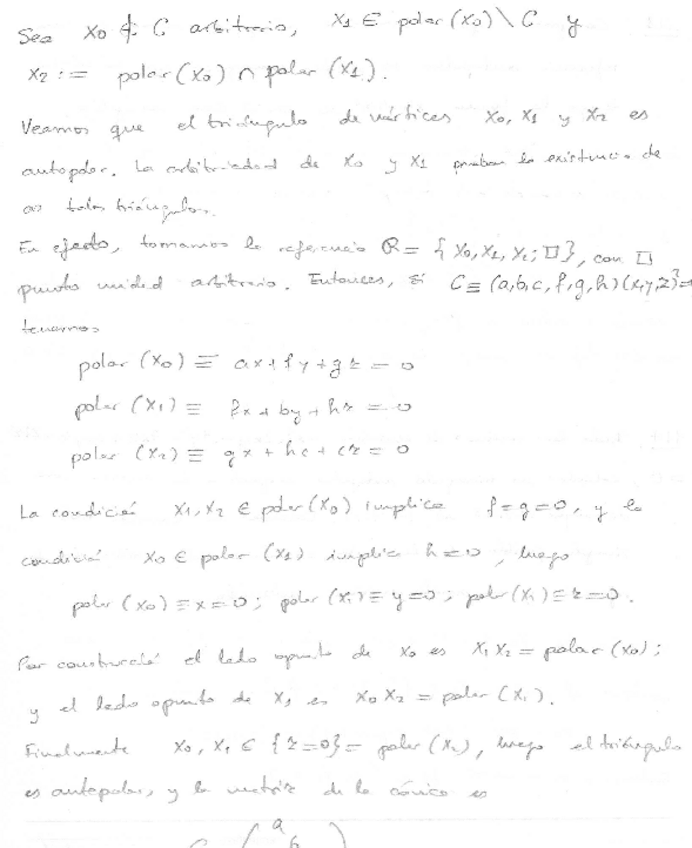 Sea x0 ∉ C arbitrario, x1 ∈ polar(x0) \ C y
x2 := polar(x0) ∩ polar(x1).
Veamos que el triángulo de vértices x0, x1 y x2 es
autopolar. La arbitriedad de x0 y x1 prueban la existencia de
∞ tales triángulos.
En efecto, tomamos la referencia R = {x0, x1, x2; U}, con U
punto unidad arbitrario. Entonces, si C ≡ (a,b,c,f,g,h)(x,y,z)²=0
tenemos
polar (x0) ≡ ax+fy+gz = 0
polar (x1) ≡ fx+by+hz = 0
polar (x2) ≡ gx+hc+cz = 0
La condición x1, x2 ∈ polar(x0) implica f=g=0, y la
condición x0 ∈ polar (x1) implica h=0, luego
polar (x0) ≡ x=0; polar (x1) ≡ y=0; polar (x1) ≡ z=0.
Por construcción el lado opuesto de x0 es x1x2 = polar(x0);
y el lado opuesto de x1 es x0x2 = polar (x1).
Finalmente x0, x1 ∈ {z=0} = polar (x2), luego el triángulo
es autopolar, y la matriz de la cónica es
C (a
b )